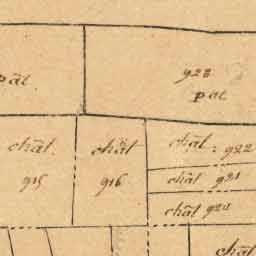 pât.
928
pat
chât.
915
chât
916
chât. 922
chât 921
chât 920
chât.